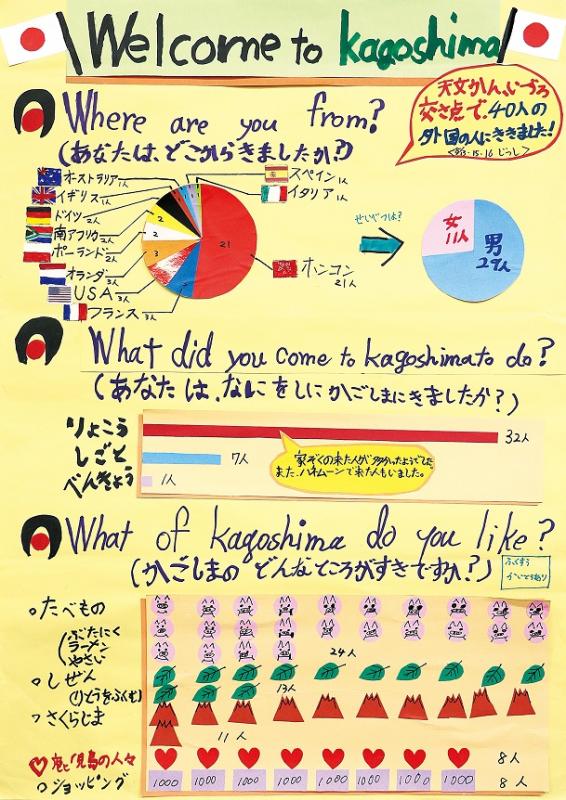 Welcome to kagoshima
天文かん、いづろ
交さ点で、40人の
外国の人にききました!
Where are you from?
(あなたは、どこからきましたか?)
オーストラリア 1人
イギリス 1人
ドイツ 2人
南アフリカ 2人
ポーランド 2人
オランダ 3人
USA 3人
フランス 3人
スペイン 1人
イタリア 1人
ホンコン
21人
21
3
2
2
せいべつは?
女
11人
男
29人
What did you come to kagoshima to do?
(あなたは、なにをしにかごしまにきましたか?)
りょこう 32人
しごと 7人
べんきょう 1人
家ぞくの来た人が多かったようでした。
また、ハネムーンで来た人もいました。
What of kagoshima do you like?
(かごしまの どんなところがすきですか?)
ふくすう
かいとうあり
たべもの
(ぶたにく
ラーメン
やさい)
24人
しぜん
(りとうをふくむ)
13人
さくらじま
11人
鹿児島の人々 8人
ショッピング 8人
1000 1000 1000 1000 1000 1000 1000 1000